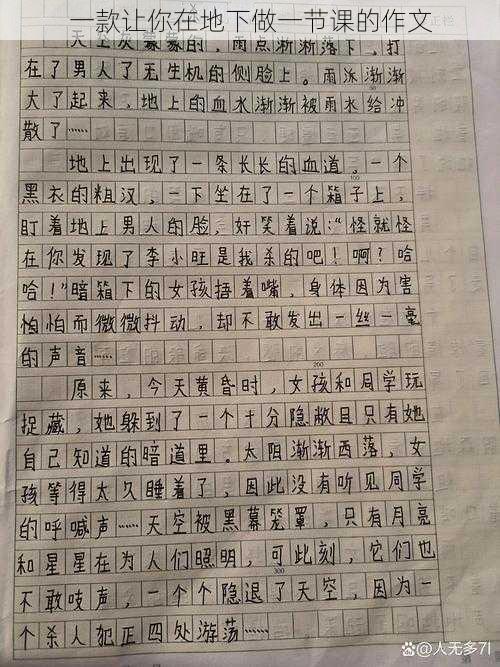 一款让你在地下做一节课的作文
天空灰蒙蒙的，雨点渐渐落下，打
在了男人了无生机的侧脸上。雨泺渐渐
大了起来，地上的血水渐渐被雨水给冲
散了……
地上出现了一条长长的血道，一个
100
黑衣的粗汉，一下坐在了一个箱子上，
盯着地上男人的脸，奸笑着说：“怪就怪
在你发现了李小旺是我杀的吧！啊？哈
哈！”暗箱下的女孩捂着嘴，身体因为害
怕怕而微微抖动，却不敢发出一丝一毫
的声音……
200
原来，今天黄昏时，女孩和同学玩
捉藏，她躲到了一个十分隐敝且只有她
自己知道的暗道里。太阳渐渐西落，女
孩等得太久睡着了，因此没有听见同学
的呼喊声……天空被黑幕笼罩，只有月亮
和星星在为人们照明，可此刻，它们也
300
不敢吱声，一个个隐退了天空，因为一
个杀人犯正四处游荡……
百家号@人无多71